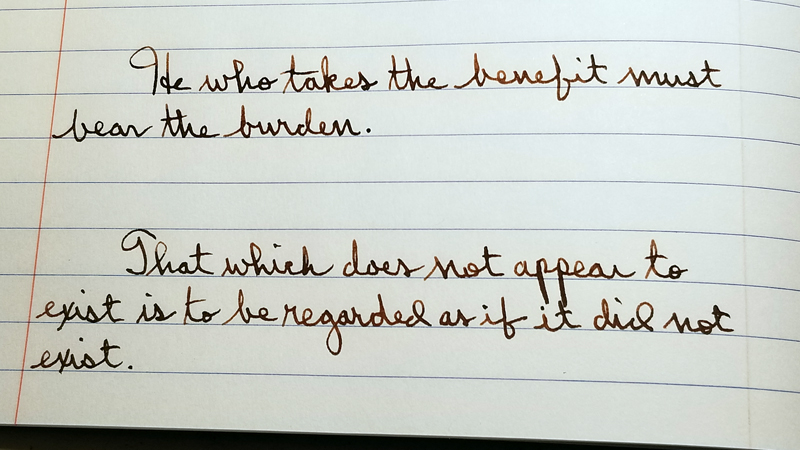 He who takes the benefit must
bear the burden.
That which does not appear to
exist is to be regarded as if it did not
exist.